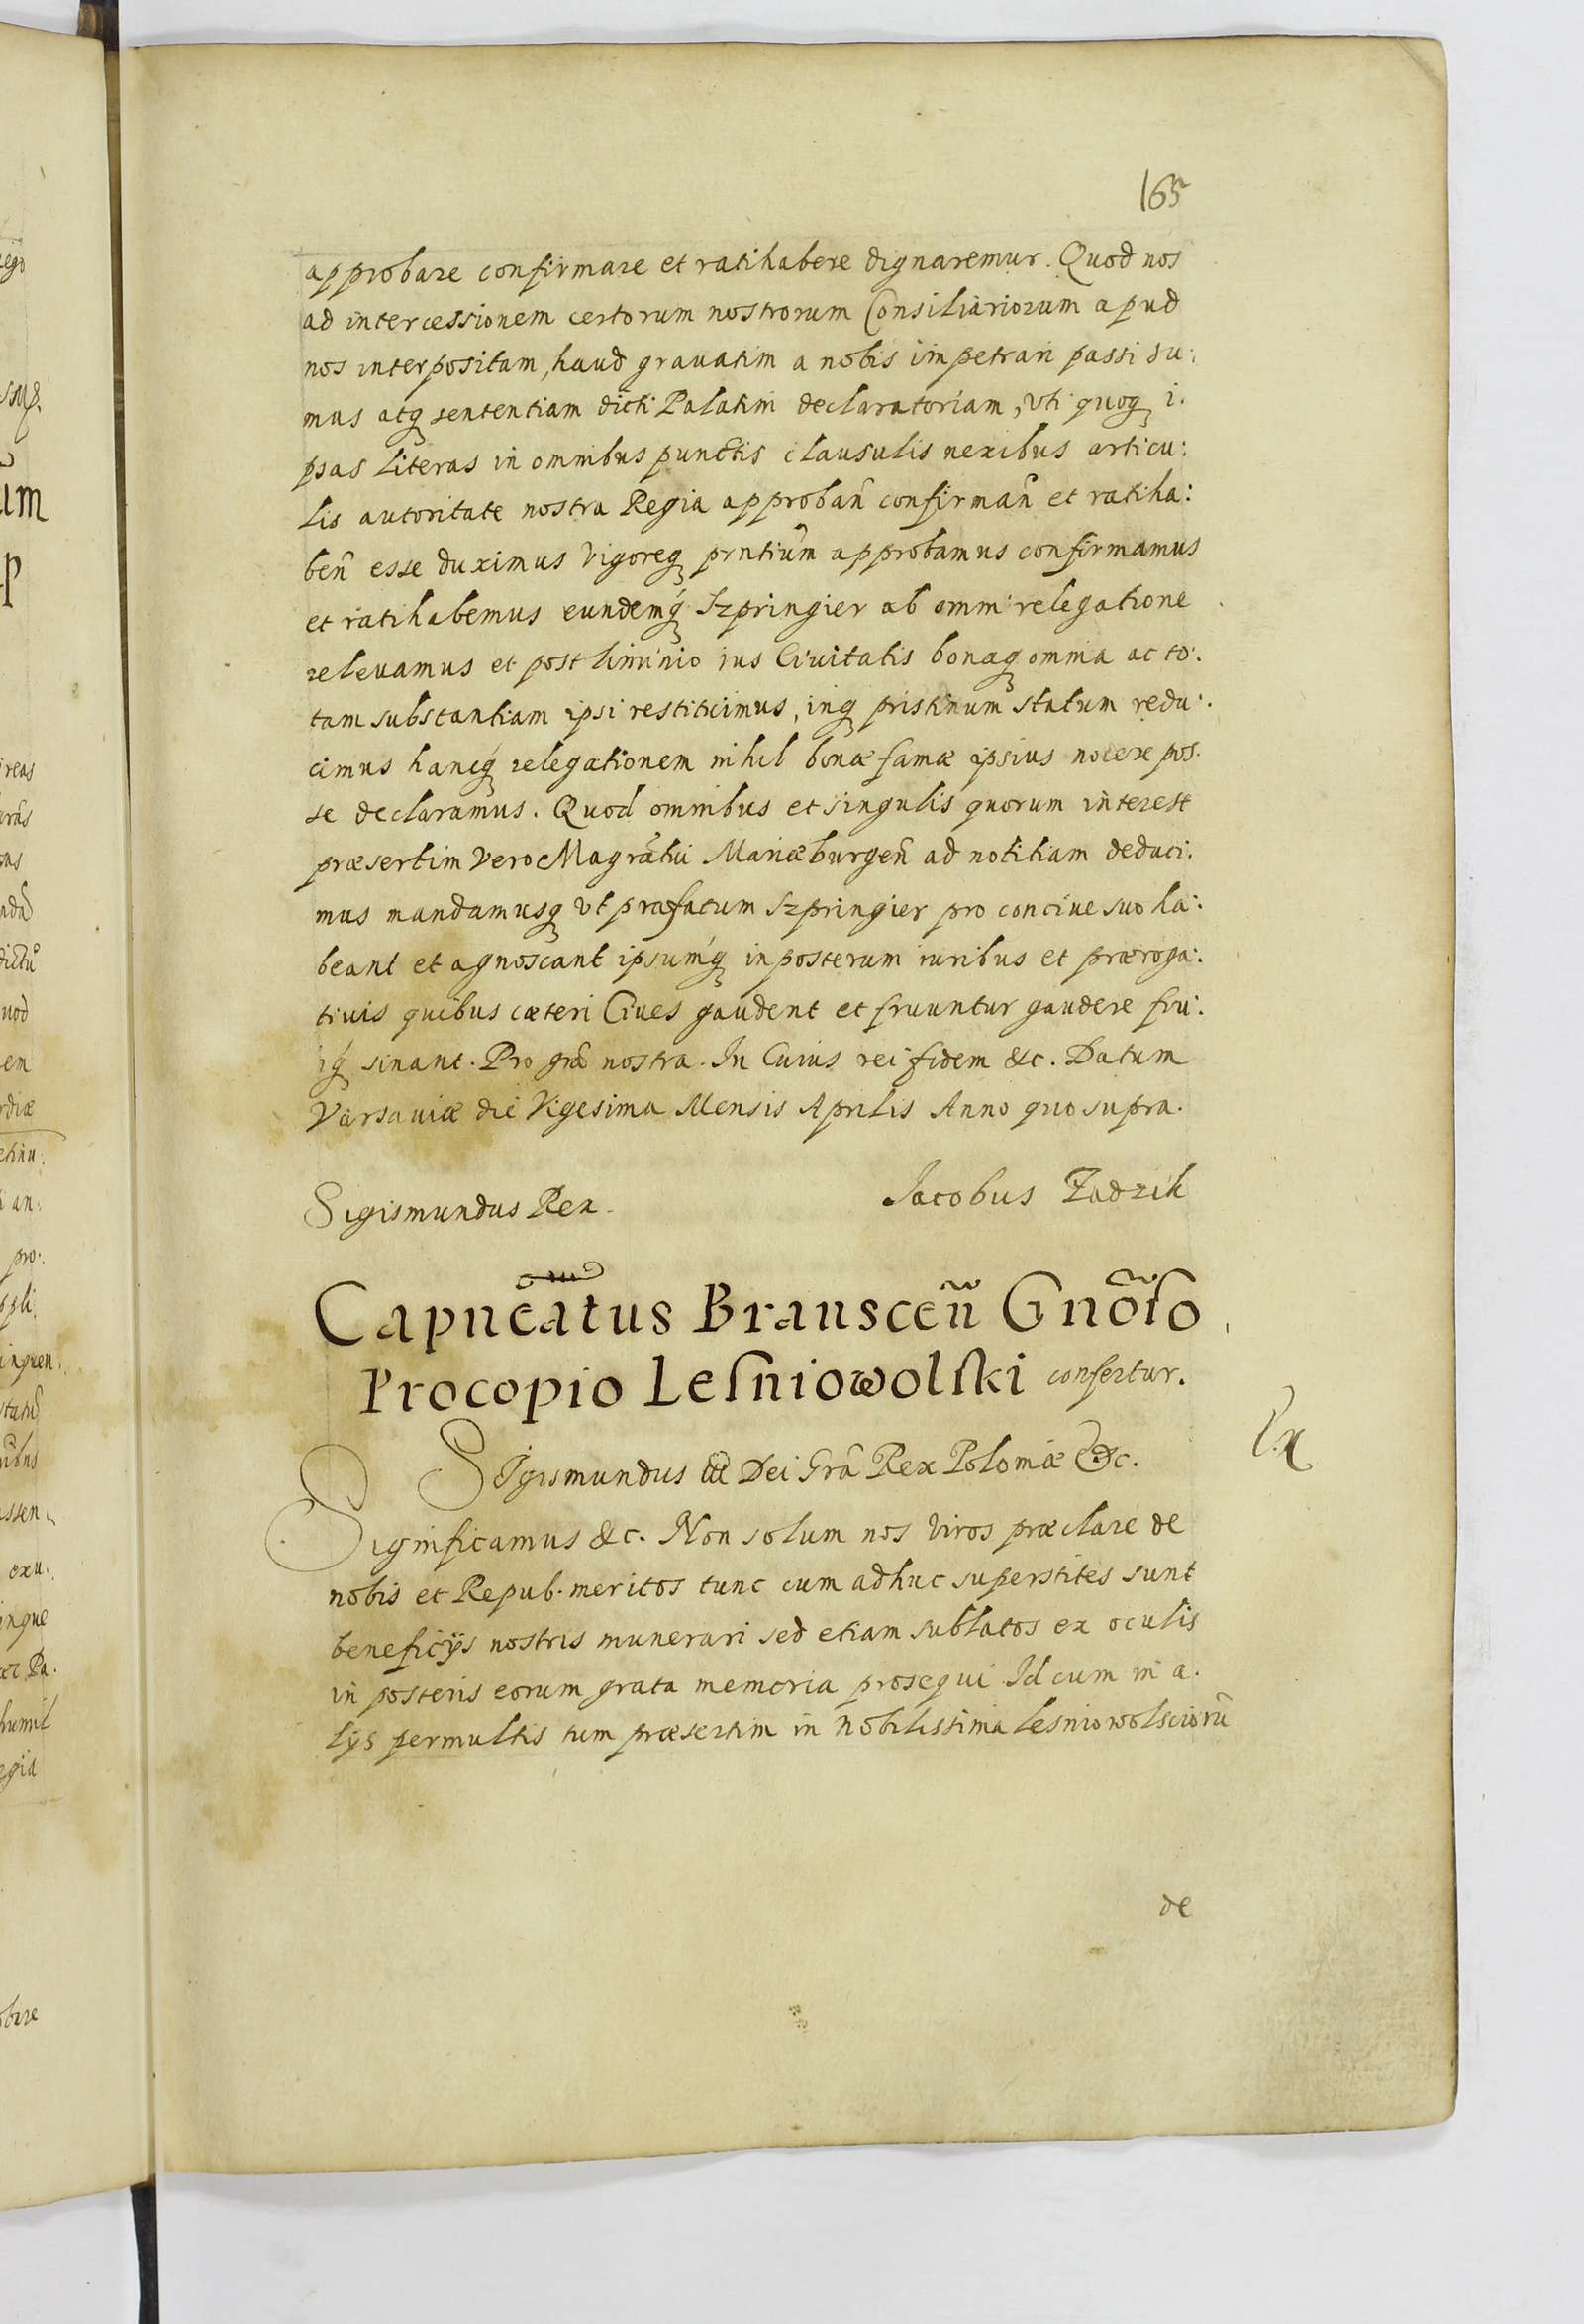 165
approbare confirmare et ratihabere dignaremur. Quod nos
ad intercessionem certorum nostrorum Consiliariorum apud
nos interpositam, haud grauatim a nobis impetrari passi su:
mus atq sententiam dicti Palatini declaratoriam, vti quoq i.
psas literas in omnibus punctis clausulis nexibus articu:
lis autoritate nostra Regia approbañ confirmañ et ratiha:
beñ esse duximus Vigoreq prntium̃ approbamus confirmamus
et ratihabemus eundemq́ Szpringier ab omni relegatione
releuamus et post liminio ius Ciuitatis bonaq omnia ac to:
tam substantiam ipsi restituimus, inq pristinum statum redu:
cimus hancq́ relegationem nihil bonæ famæ ipsius nocere pos.
se declaramus. Quod omnibus et singulis quorum interest
præsertim vero Magrãtui Mariæburgeñ ad notitiam deduci:
mus mandamusq vt præfatum Szpringier pro conciue suo ha:
beant et agnoscant ipsumq́ inposterum iuribus et præroga:
tiuis quibus cæteri Ciues gaudent et fruuntur gaudere fru:
iq́ sinant. Pro grã nostra. In Cuius rei fidem &c. Datum
Varsauiæ die Vigesima Mensis Aprilis Anno quo supra.
Sigismundus Rex. Jacobus Zadzik
Capnẽatus Branscen̄ Gnõso
Procopio Leſniowolſki confertur.
Ex
Sigismundus III Dei Grã Rex Poloniæ &c.
Significamus &c. Non solum nos viros præclare de
nobis et Repub. meritos tunc cum adhuc superstites sunt
beneficijs nostris munerari sed etiam sublatos ex oculis
in posteris eorum grata memoria prosequi Id cum in a.
lijs permultis tum præsertim in Nobilissima Lesniowolsciorũ
de